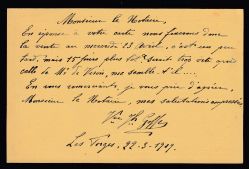 Monsieur le Notaire,
En réponse à votre carte nous fixerons donc
la vente au mercredi 13 Avril, c'est un peu
tard, mais 15 jours plus tôt serait trop près que
celle de Mr de , me semble t'il....
En vous remerciant, je vous prie d'agréer,
Monsieur le Notaire, mes salutations empressées
Les Forges, 22-3-1919.